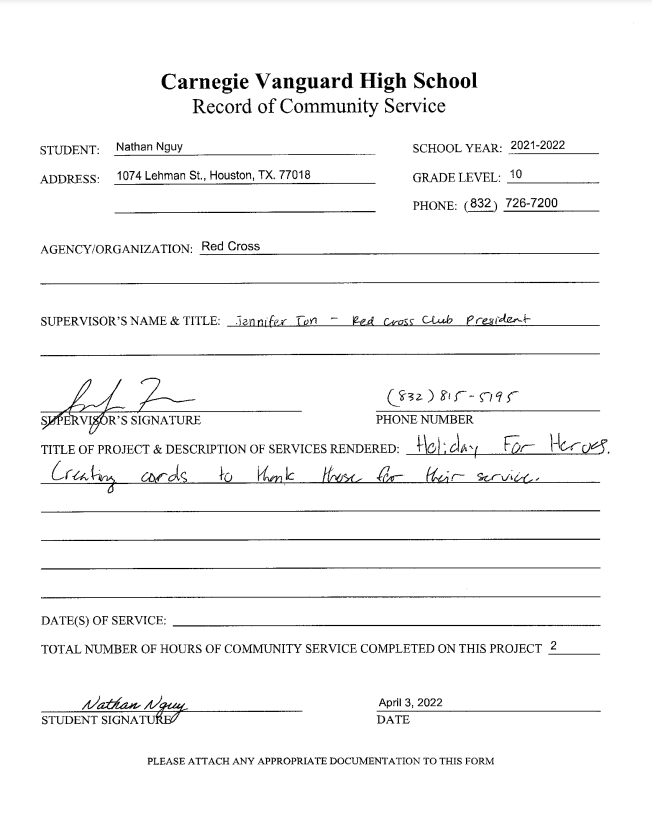 Carnegie Vanguard High School
Record of Community Service
STUDENT: Nathan Nguy SCHOOL YEAR: 2021-2022
ADDRESS: 1074 Lehman St., Houston, TX. 77018 GRADE LEVEL: 10
PHONE: (832) 726-7200
AGENCY/ORGANIZATION: Red Cross
SUPERVISOR'S NAME & TITLE: Jennifer Ton - Red Cross Club President
(832) 815-5795
SUPERVISOR'S SIGNATURE PHONE NUMBER
TITLE OF PROJECT & DESCRIPTION OF SERVICES RENDERED: Holiday For Heroes.
Creating cards to thank those for their service.
DATE(S) OF SERVICE:
TOTAL NUMBER OF HOURS OF COMMUNITY SERVICE COMPLETED ON THIS PROJECT 2
Nathan Nguy April 3, 2022
STUDENT SIGNATURE DATE
PLEASE ATTACH ANY APPROPRIATE DOCUMENTATION TO THIS FORM